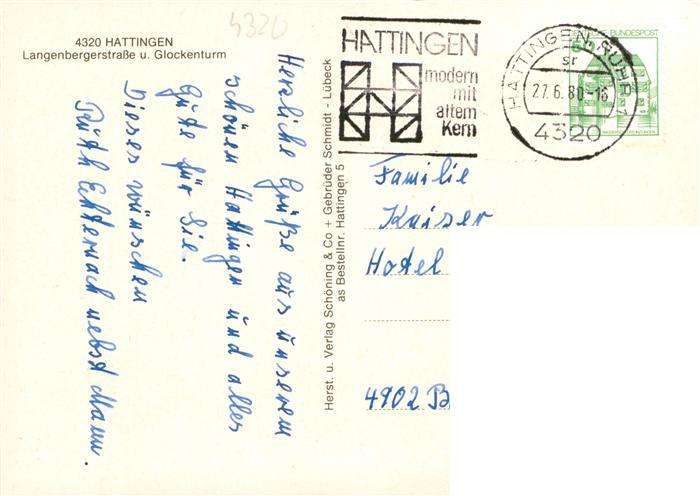 4320
4320 HATTINGEN
Langenbergerstraße u. Glockenturm
HATTINGEN
modern
mit
altem
Kern
HATTINGEN, RUHR 1
sr
27.6.80-16
4320
DEUTSCHE BUNDESPOST
Herzliche Grüße aus unserem
schönen Hattingen und alles
Gute für Sie.
Dieses wünschen
Ruth Echternach nebst Mann.
Herst. u. Verlag Schöning & Co + Gebrüder Schmidt - Lübeck
as Bestellnr. Hattingen 5
Familie
Kaiser
Hotel
4902 B